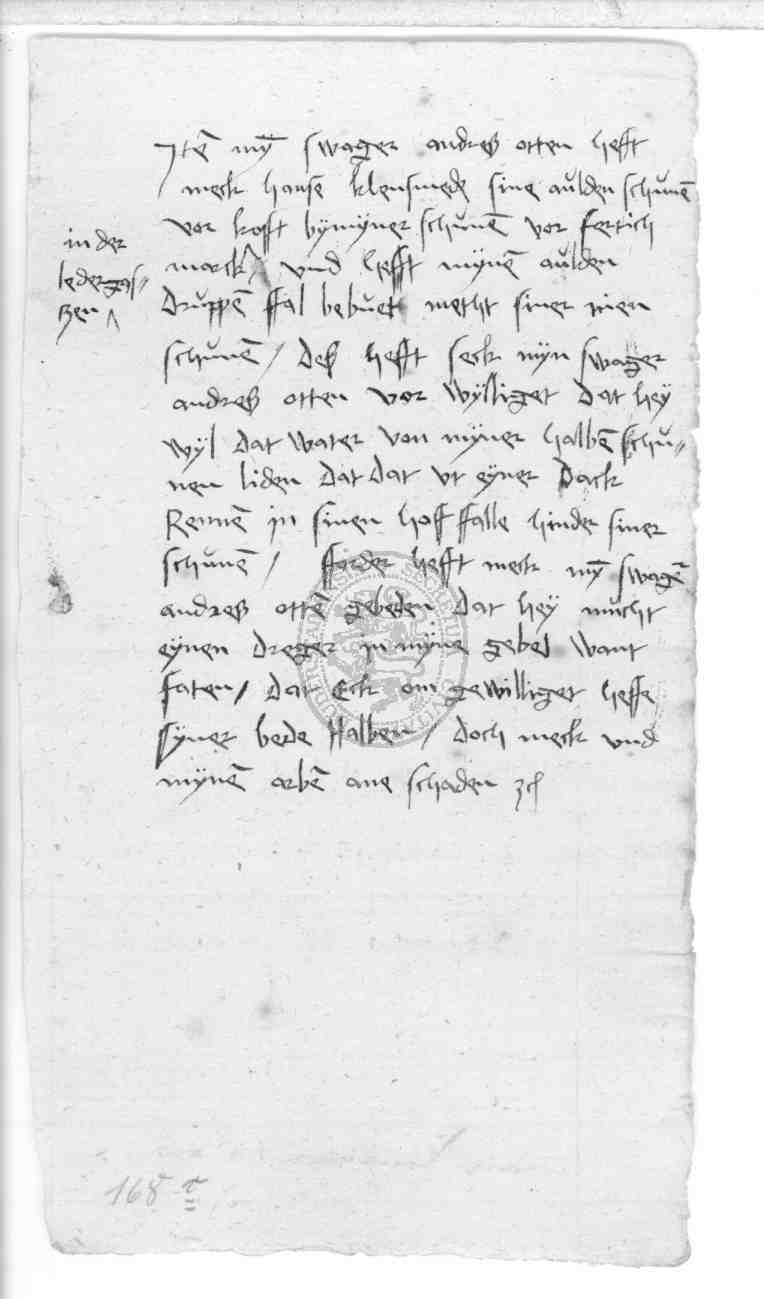 Jtē mȳ swager andres otten hefft
meck hanse klensmede sine aulden schunē
vor kofft by myner schunē vor fertich
in der
ledergas-
sen
marck und hefft mynē aulden
druppē ffal bebuet metht siner nien
schunē / des hefft seck myn swager
andres otten vor wylliget dat hey
wyl dat water von myner halbē schu-
nen liden dat dat vt eyner dack
Rennē in sinen hoff falle hinder siner
schunē / fforder hefft meck mȳ swagē
andres ottē gebeden dat hey mucht
eynen dreger in myne gebel want
faten / dat Eck om gewilliget heffe
syner bede halben / doch meck und
mynē arbē ane schaden
168 r